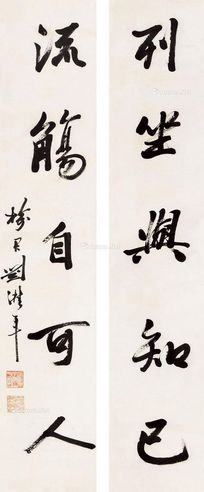 列坐與知己
流觴自可人
劉洪年